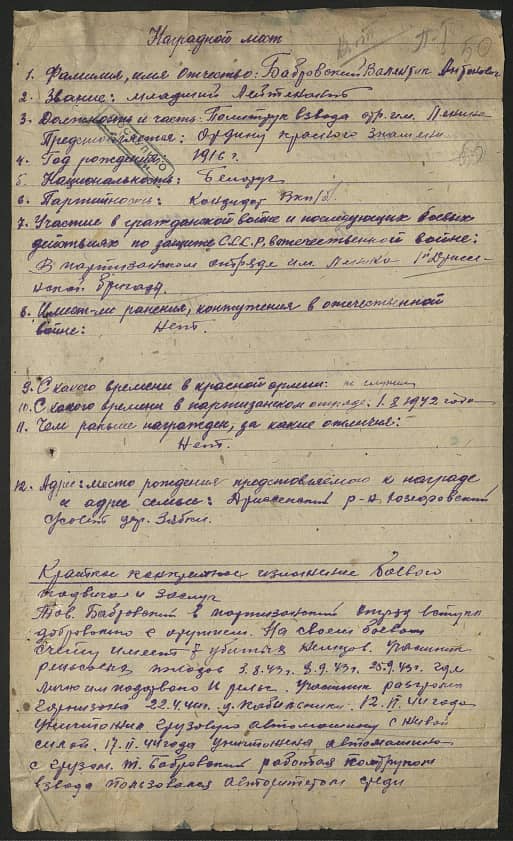 Наградной лист
1. Фамилия, имя отчество: Бабровский Валентин Антонович
2. Звание: младший лейтенант
3. Должность и часть: Политрук взвода отр. им. Ленина
Представляется: Ордену красного знамени
4. Год рождения 1916 г.
5. Национальность: Белорус
6. Партийность: Кандидат ВКП/б/
7. Участие в гражданской войне и последующих боевых
действиях по защите С.С.С.Р, в отечественной войне:
В партизанском отряде им. Ленина 1ая Дриссе-
нской бригады.
8. Имеет-ли ранения, контужения в отечественной
войне: Нет.
9. С какого времени в красной армии: не служил
10. С какого времени в партизанском отряде. 1.8.1942 года
11. Чем раньше награжден, за какие отличия:
Нет.
12. Адрес: место рождения представляемого к награде
и адрес семьи: Дриссенский р-н
совет дер. Зябки.
Краткое конкретное изложение боевого
подвига и заслуг
Тов. Бабровский в партизанский отряд вступил
добровольно с оружием. На своем боевом
счету имеет 7 убитых немцев. Участник
рельсовых походов 3.8.43 г. 8.9.43 г. 25.9.43 г. где
лично им подорвано 11 рельс. Участник разгрома
Гарнизона 22.4.44 г. д. Кобыльники. 12.II.44 года
уничтожил грузовую автомашину с живой
силой. 17.II.44 года уничтожена автомашина
с грузом. Т. Бабровский работая политруком
взвода пользовался авторитетом среди